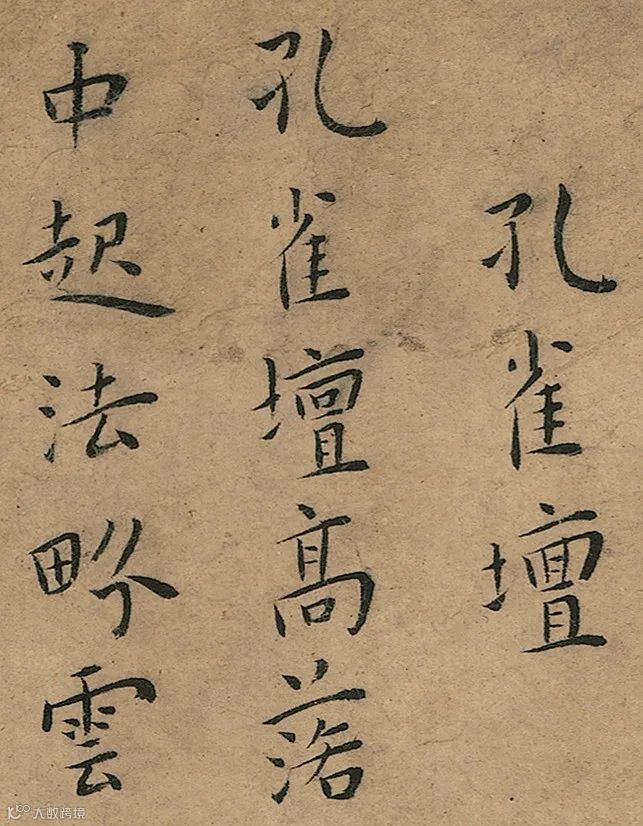 孔雀壇
孔雀壇高落
中起法畍雲
大数跨境